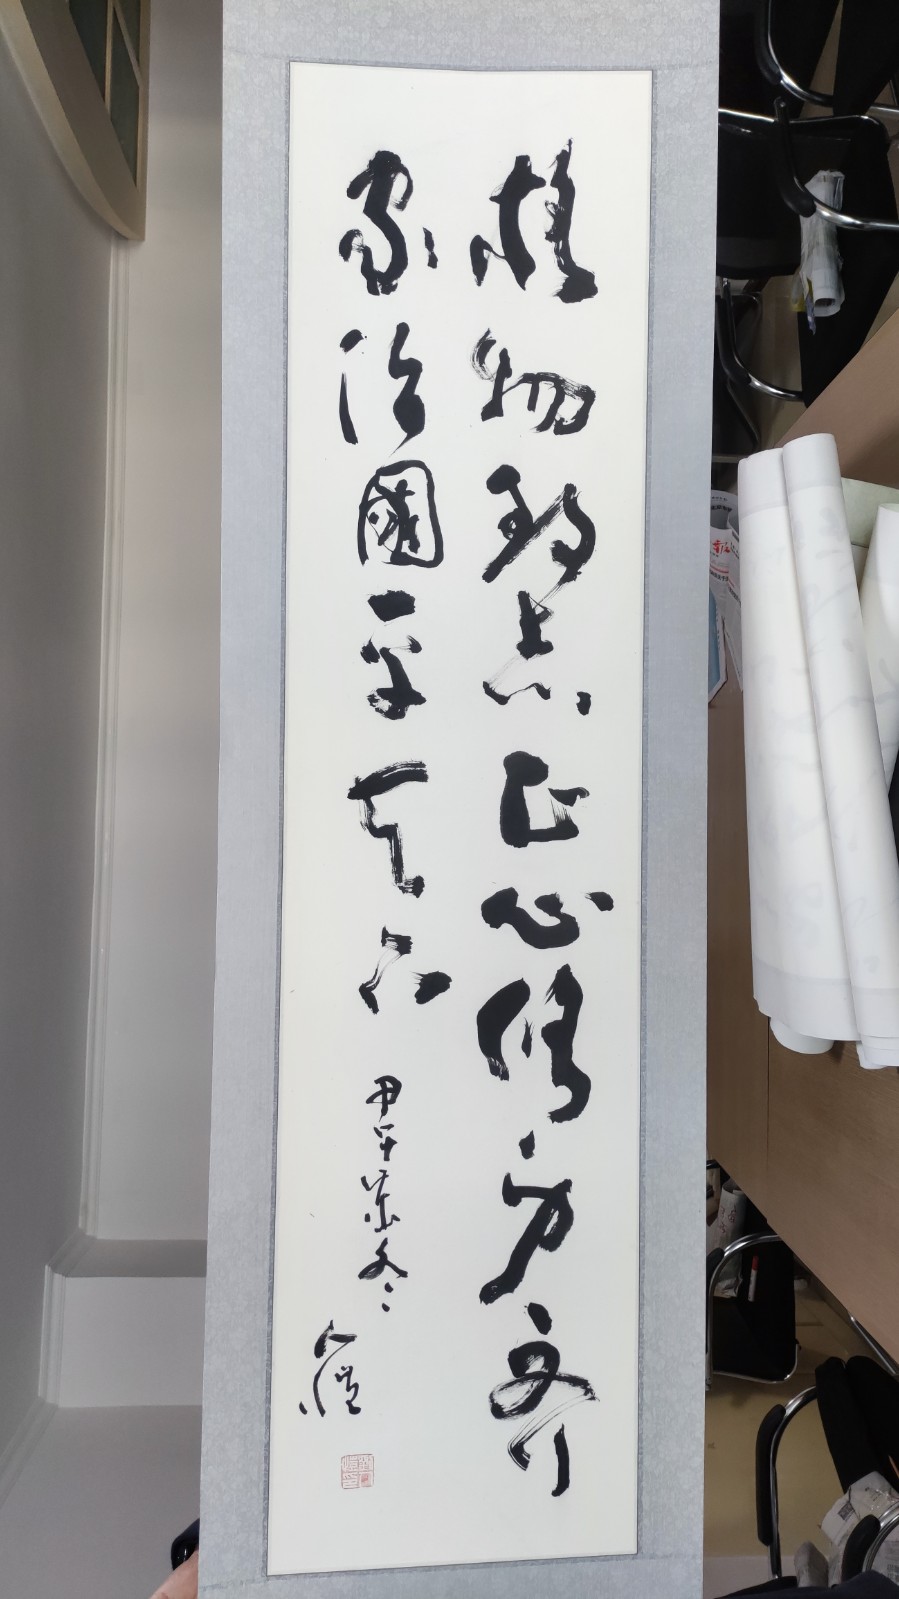 格物致志正心修身齐
家治國平天下
甲午歲冬